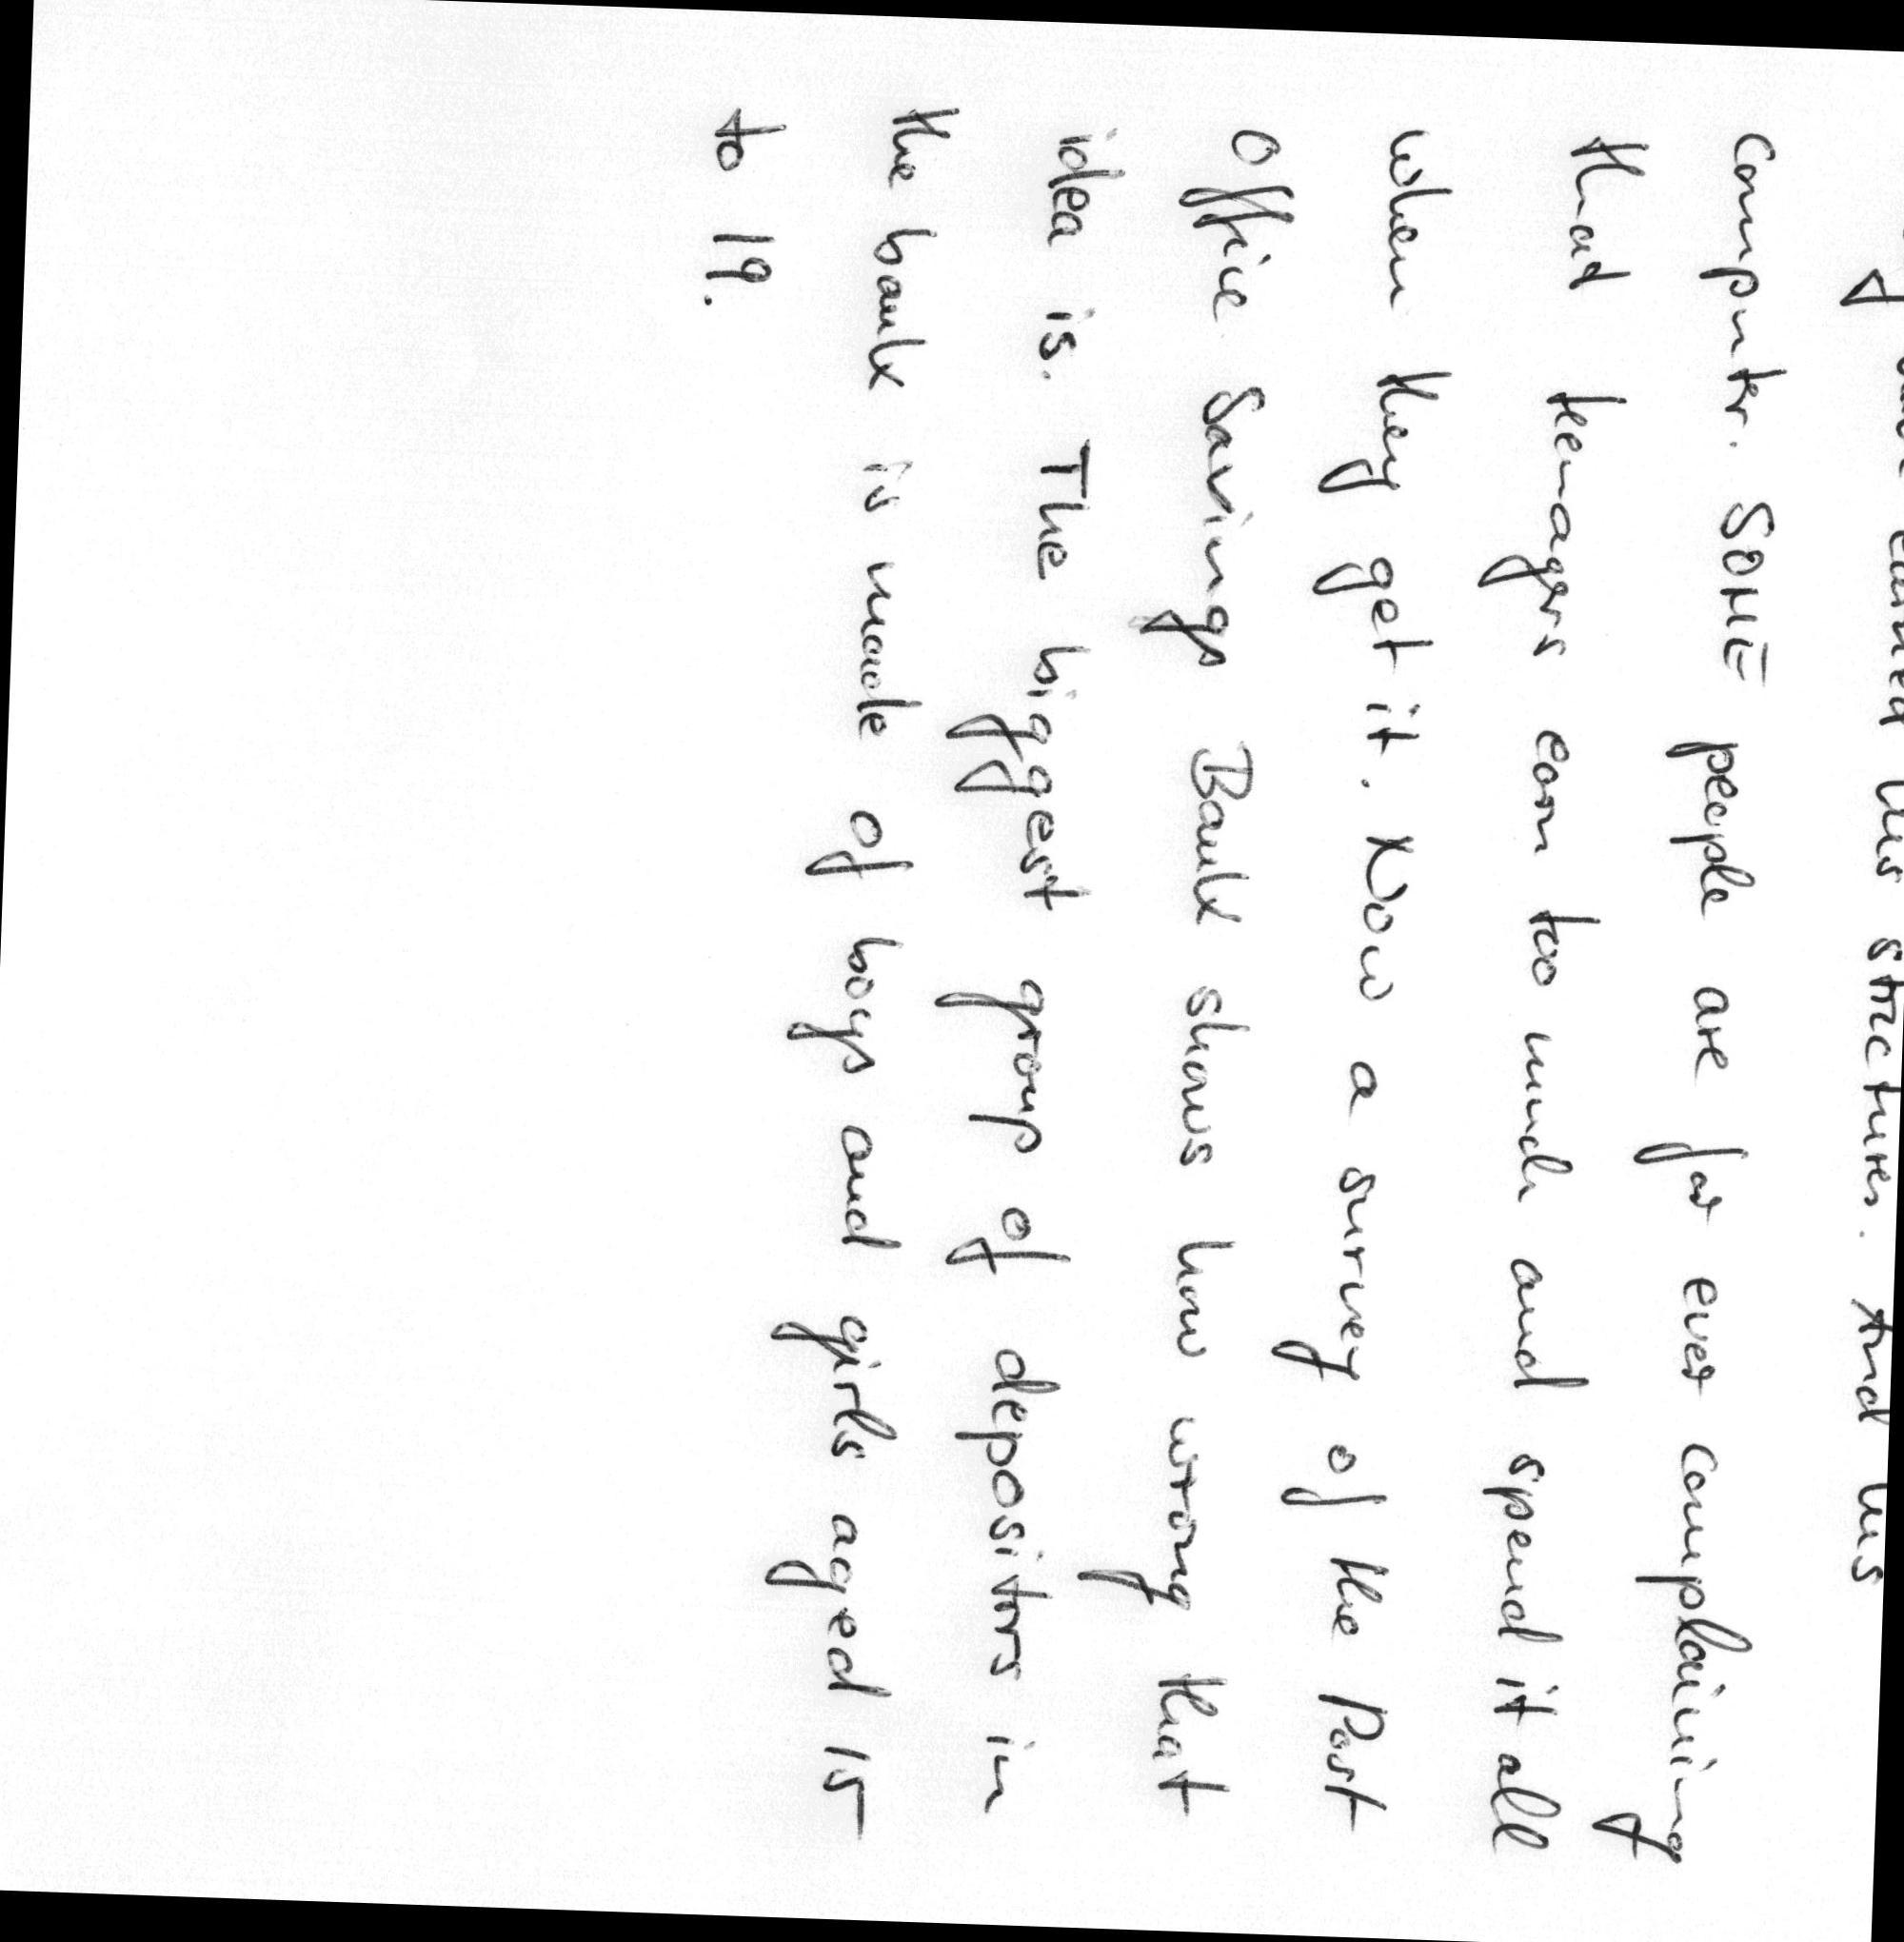 earned his structures. And his
computer. SOME people are for ever complaining
that teenagers earn too much and spend it all
when they get it. Now a survey of the Post
Office Savings Bank shows how wrong that
idea is. The biggest group of depositors in
the bank is made of boys and girls aged 15
to 19.